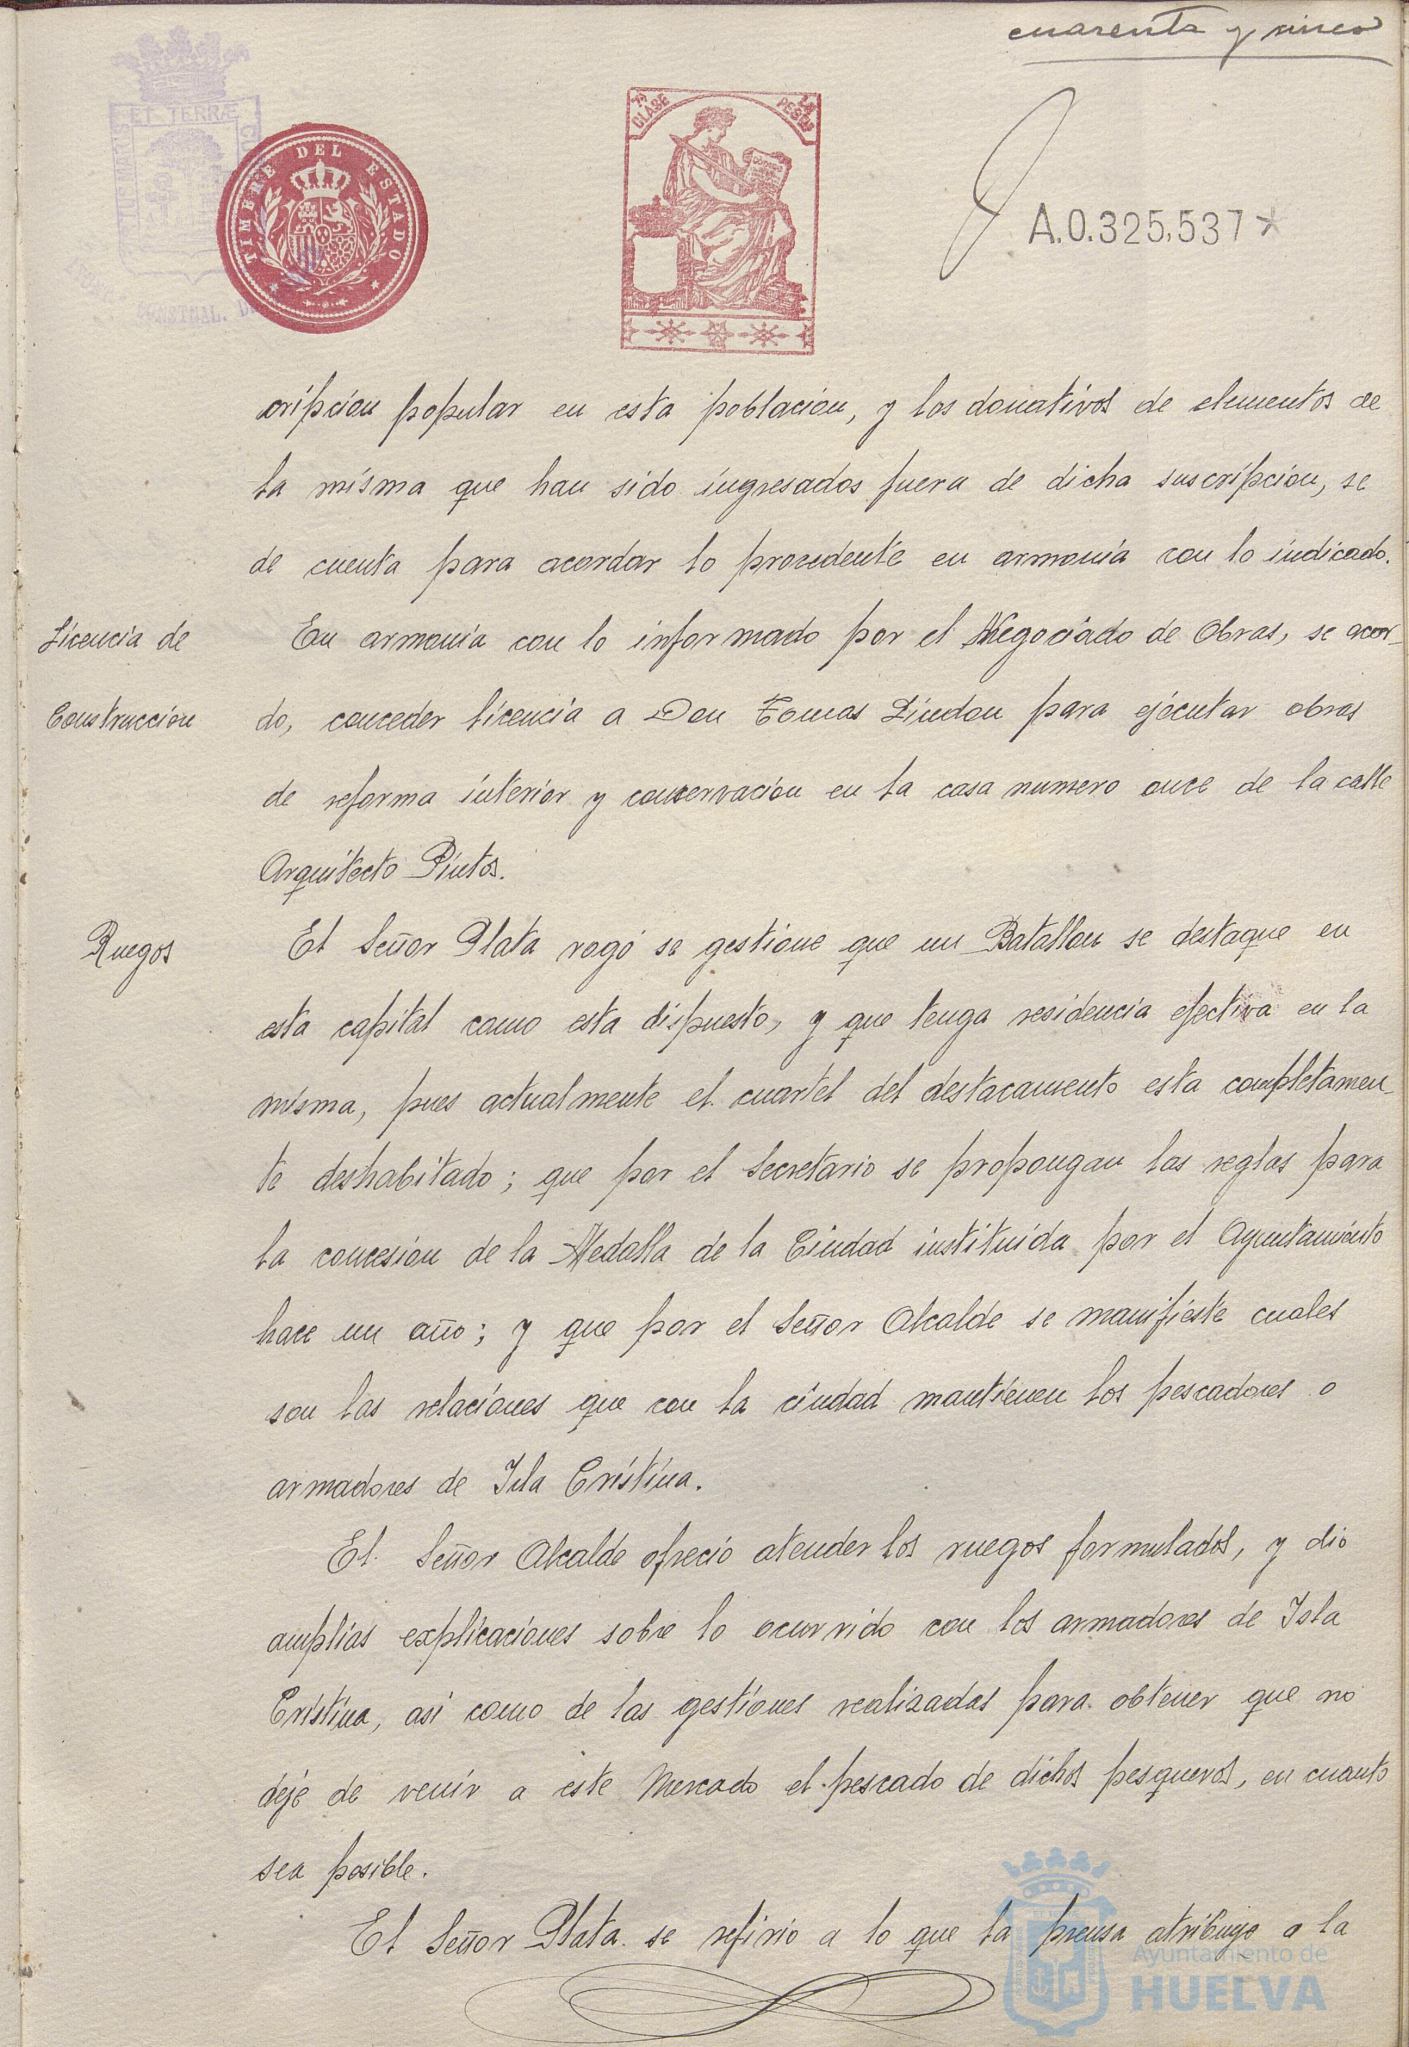 cuarenta y cinco
ET TERRÆ
TIMBRE DEL ESTADO
7ª CLASE
PESETAS
A.0.325,537*
CONSTNAL. DE
cripcion popular en esta poblacion, y los donativos de elementos de
la misma que han sido ingresados fuera de dicha suscripcion, se
de cuenta para acordar lo procedente en armonia con lo indicado.
Licencia de
Construccion
En armonia con lo informado por el Negociado de Obras, se acor-
do, conceder licencia a Don Tomas Lindon para ejecutar obras
de reforma interior y conservacion en la casa numero once de la calle
Arquitecto Pintos.
Ruegos
El Señor Plata rogó se gestione que un Batallon se destaque en
esta capital como esta dispuesto, y que tenga residencia efectiva en la
misma, pues actualmente el cuartel del destacamento esta completamen-
te deshabitado; que por el Secretario se propongan las reglas para
la concesion de la Medalla de la Ciudad instituida por el Ayuntamiento
hace un año; y que por el Señor Alcalde se manifieste cuales
son las relaciones que con la ciudad mantienen los pescadores o
armadores de Isla Cristina.
El Señor Alcalde ofrecio atender los ruegos formulados, y dio
amplias explicaciones sobre lo ocurrido con los armadores de Isla
Cristina, asi como de las gestiones realizadas para obtener que no
deje de venir a este Mercado el pescado de dichos pesqueros, en cuanto
sea posible.
El Señor Plata se refirio a lo que la prensa atribuyo a la
Ayuntamiento de
HUELVA